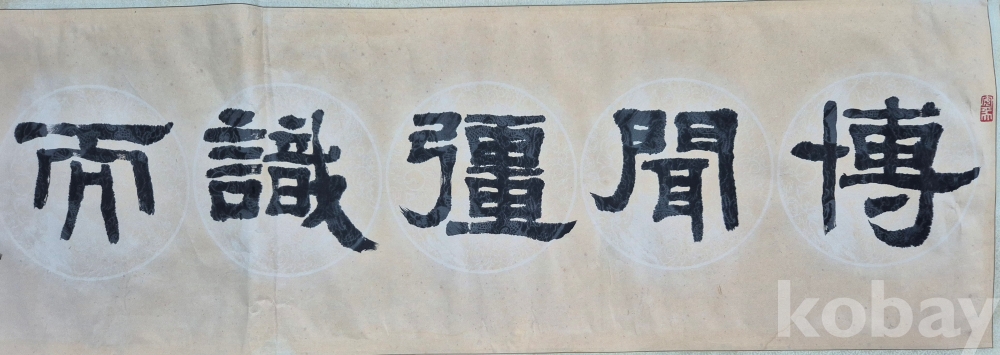 博聞彊識而
kobay